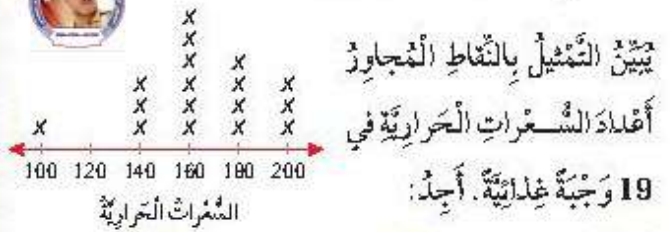 يُبَيِّنُ التَّمْثيلُ بِالنِّقاطِ الْمُجاوِرُ
أَعْدادَ السُّعْراتِ الْحَرارِيَّةِ في
19 وَجْبَةً غِذائِيَّةً. أَجِدُ:
100 120 140 160 180 200
السُّعْراتُ الْحَرارِيَّةُ